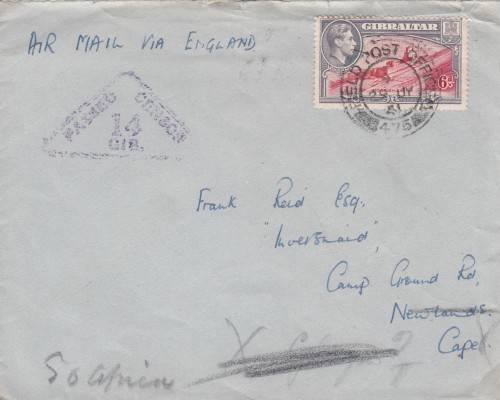 AIR MAIL VIA ENGLAND
GIBRALTAR
6d
FIELD POST OFFICE
41
475
PASSED CENSOR
14
GIB.
Frank Reid Esq.
"Inversnaid",
Camp Ground Rd,
Newlands.
Cape
X
X
?
So Africa